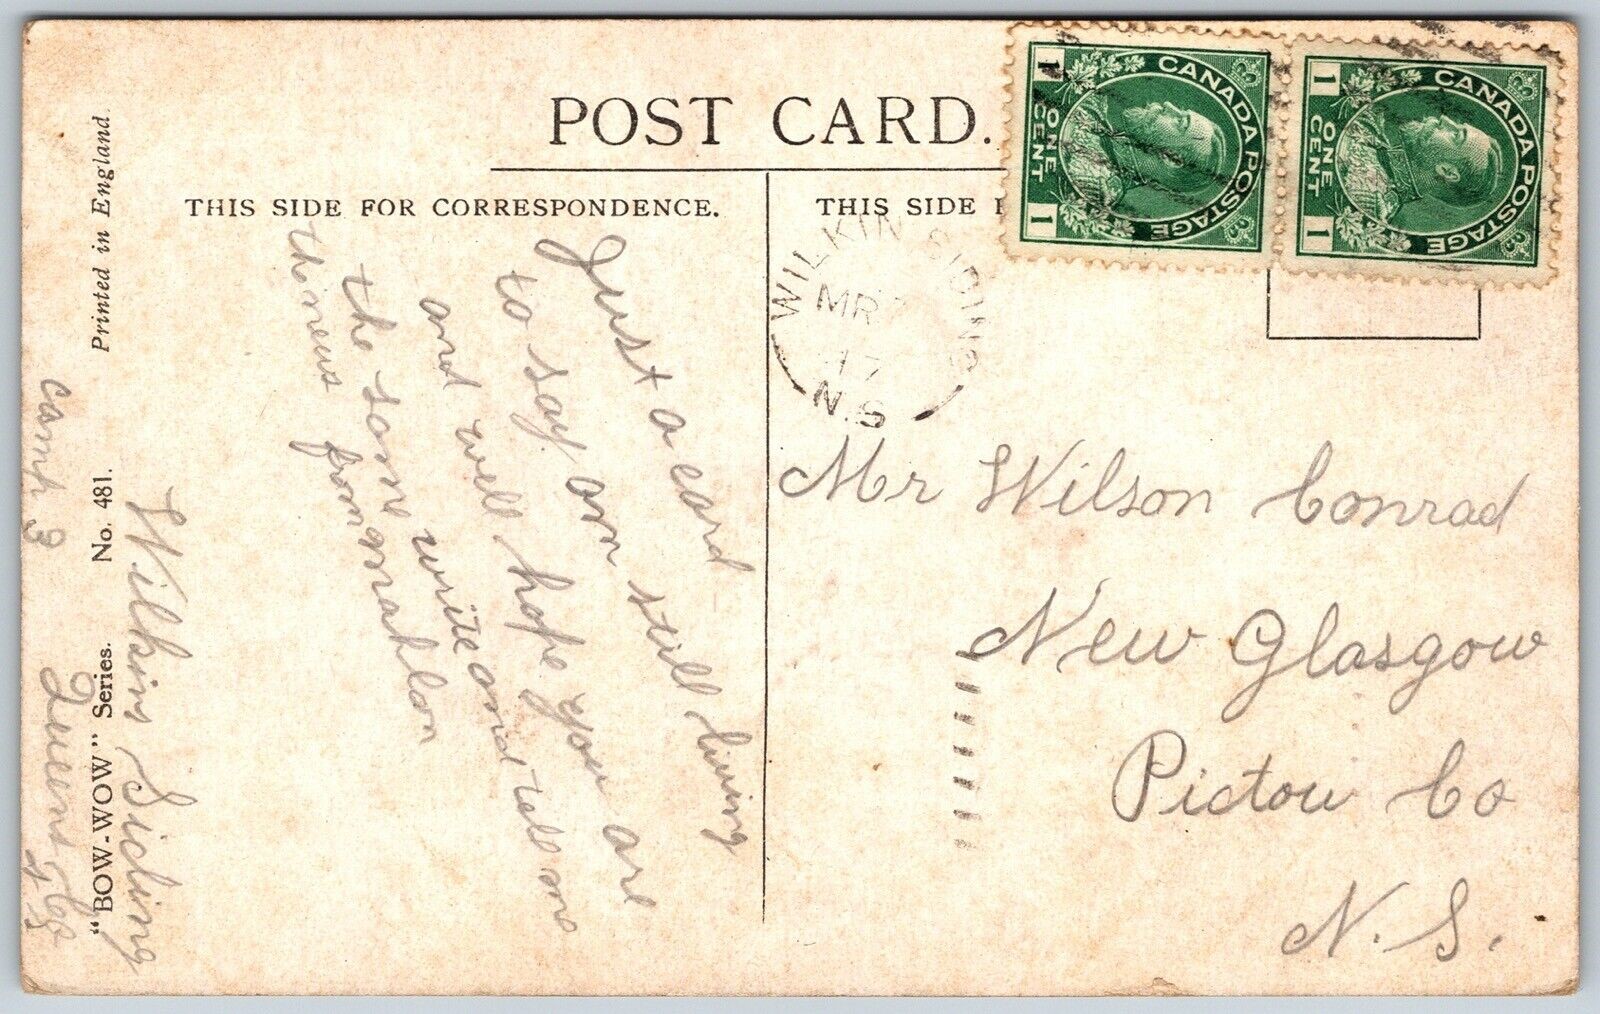 POST CARD.
THIS SIDE FOR CORRESPONDENCE.
THIS SIDE
Printed in England.
No. 481.
"BOW-WOW" Series.
CANADA POSTAGE
1 ONE CENT 1
CANADA POSTAGE
1 ONE CENT 1
WILKIN SIDING
MR
17
N.S
Just a card
to say am still living
and well hope you are
the same write and tell me
the news from
Wilkins Siding
Camp 3
Queens
Mr Wilson Conrad
New Glasgow
Pictou Co
N.S.